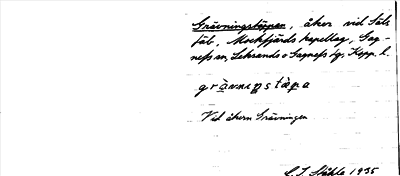 Grävningstäppan, åker vid Säls
fäb., Mockfjärds kapellag, Gag-
nefs sn, Leksands o Gagnefs tg, Kopp. l.
grävnıŋstäpa
Vid åkern Grävningen
C. I. Ståhle 1935